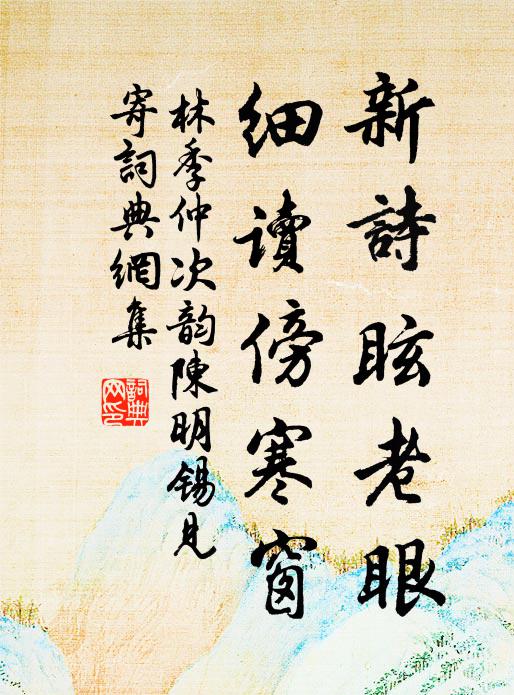 新詩眩老眼
細讀傍寒窗
林季仲次韵陳明錫見
寄詞典網集
詞典網印